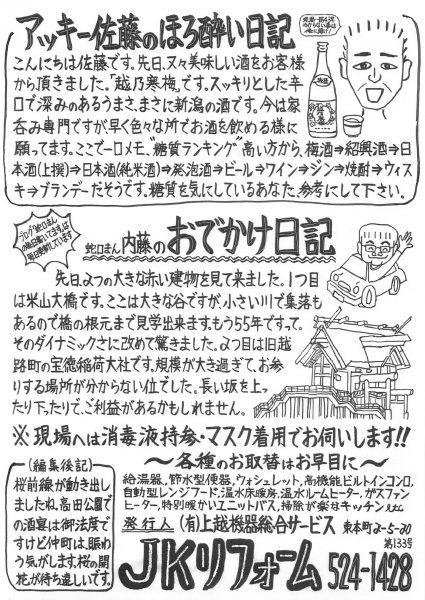 アッキー佐藤のほろ酔い日記
こんにちは佐藤です。先日、又々美味しい酒をお客様
から頂きました。「越乃寒梅」です。スッキリとした辛
口で深みのあるうまさ、まさに新潟の酒です。今は家
呑み専門ですが、早く色々な所でお酒を飲める様に
願ってます。ここで一口メモ、"糖質ランキング"高い方から、梅酒⇒紹興酒⇒日
本酒(上撰)⇒日本酒(純米酒)⇒発泡酒⇒ビール⇒ワイン⇒ジン⇒焼酎⇒ウィス
キー⇒ブランデーだそうです。糖質を気にしているあなた、参考にして下さい。
ブログ"蛇口まん
毎日更新しています
蛇口まん内藤のおでかけ日記
先日、2つの大きな赤い建物を見て来ました。1つ目
は米山大橋です。ここは大きな谷ですが、小さい川で集落も
あるので橋の根元まで見学出来ます。もう55年ですって。
そのダイナミックさに改めて驚きました。2つ目は旧越
路町の宝徳稲荷大社です。規模が大き過ぎて、お参
りする場所が分からない位でした。長い坂を上っ
たり下ったりで、ご利益があるかもしれません。
※現場へは消毒液持参・マスク着用でお伺いします!!
(編集後記)
桜前線が動き出し
ましたね。高田公園で
の酒宴は御法度で
すけど仲町は、賑わ
う気がします。桜の開
花が待ち遠しいです。
〜各種のお取替はお早目に〜
給湯器、節水型便器、ウォシュレット、高機能ビルトインコンロ、
自動型レンジフード、温水床暖房、温水ルームヒーター、ガスファン
ヒーター、特別暖かいユニットバス、掃除が楽なキッチンetc
発行人 (有)上越機器総合サービス 東本町2-5-20
第133号
JKリフォーム 524-1428